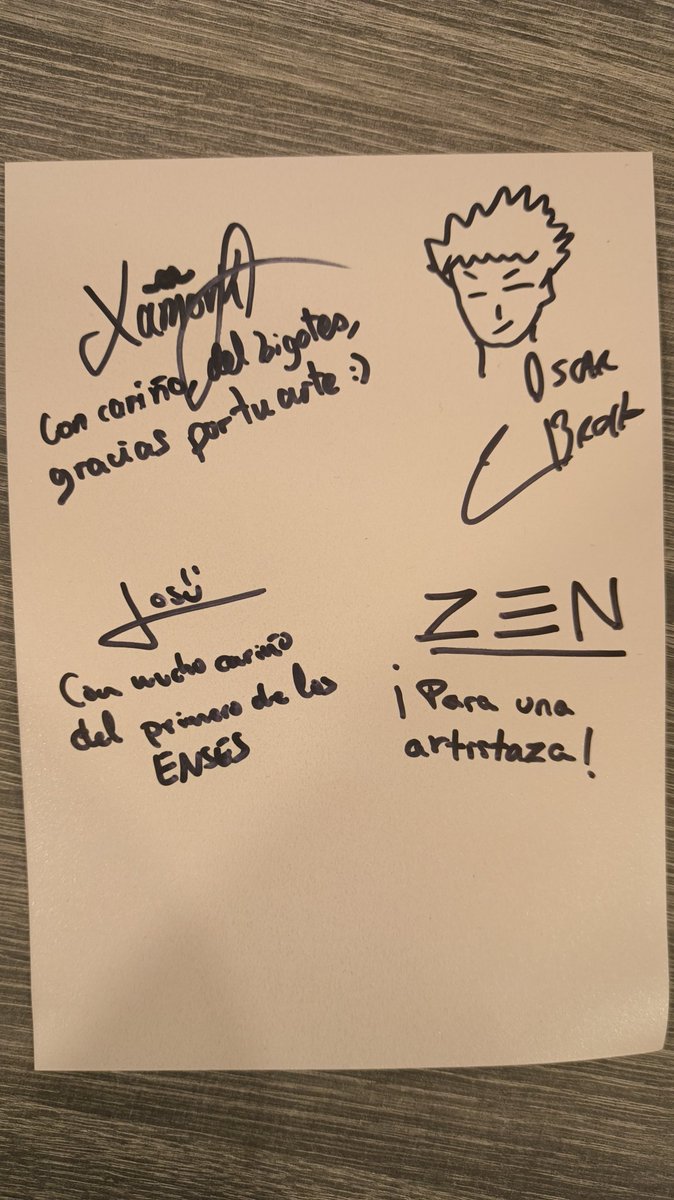 Con cariño, del bigotes,
gracias por tu arte :)
OSCAR
BROCK
José
Con mucho cariño
del primero de los
ENSES
ZEN
¡Para una
artistaza!